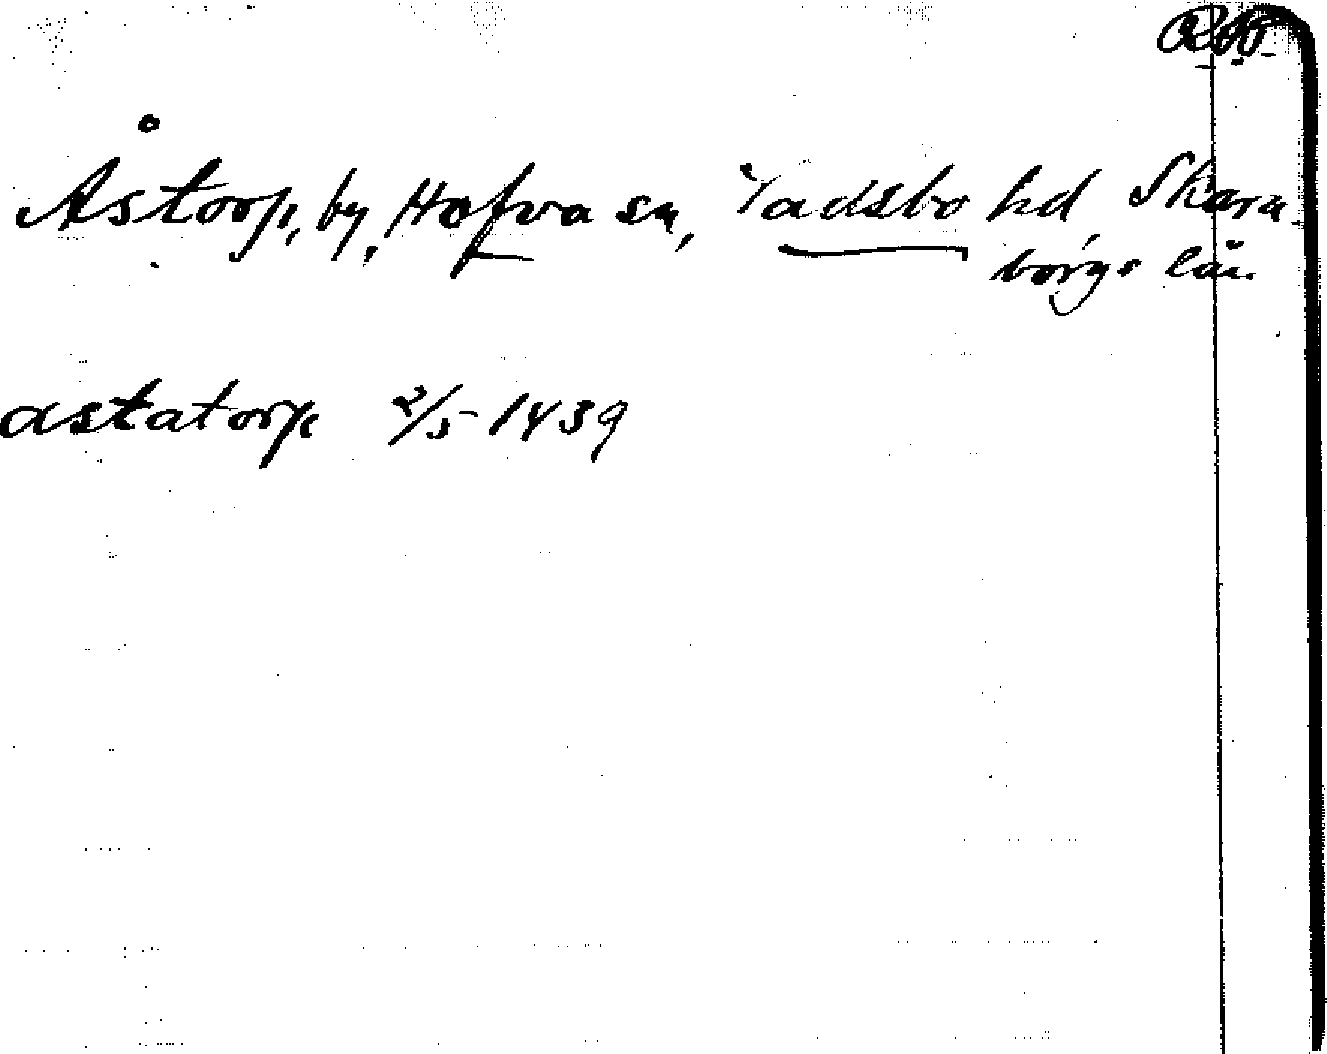 Åstorp, by, Hofva sn, Vadsbo hd, Skara-
borgs län.
astatorp 2/5 1439